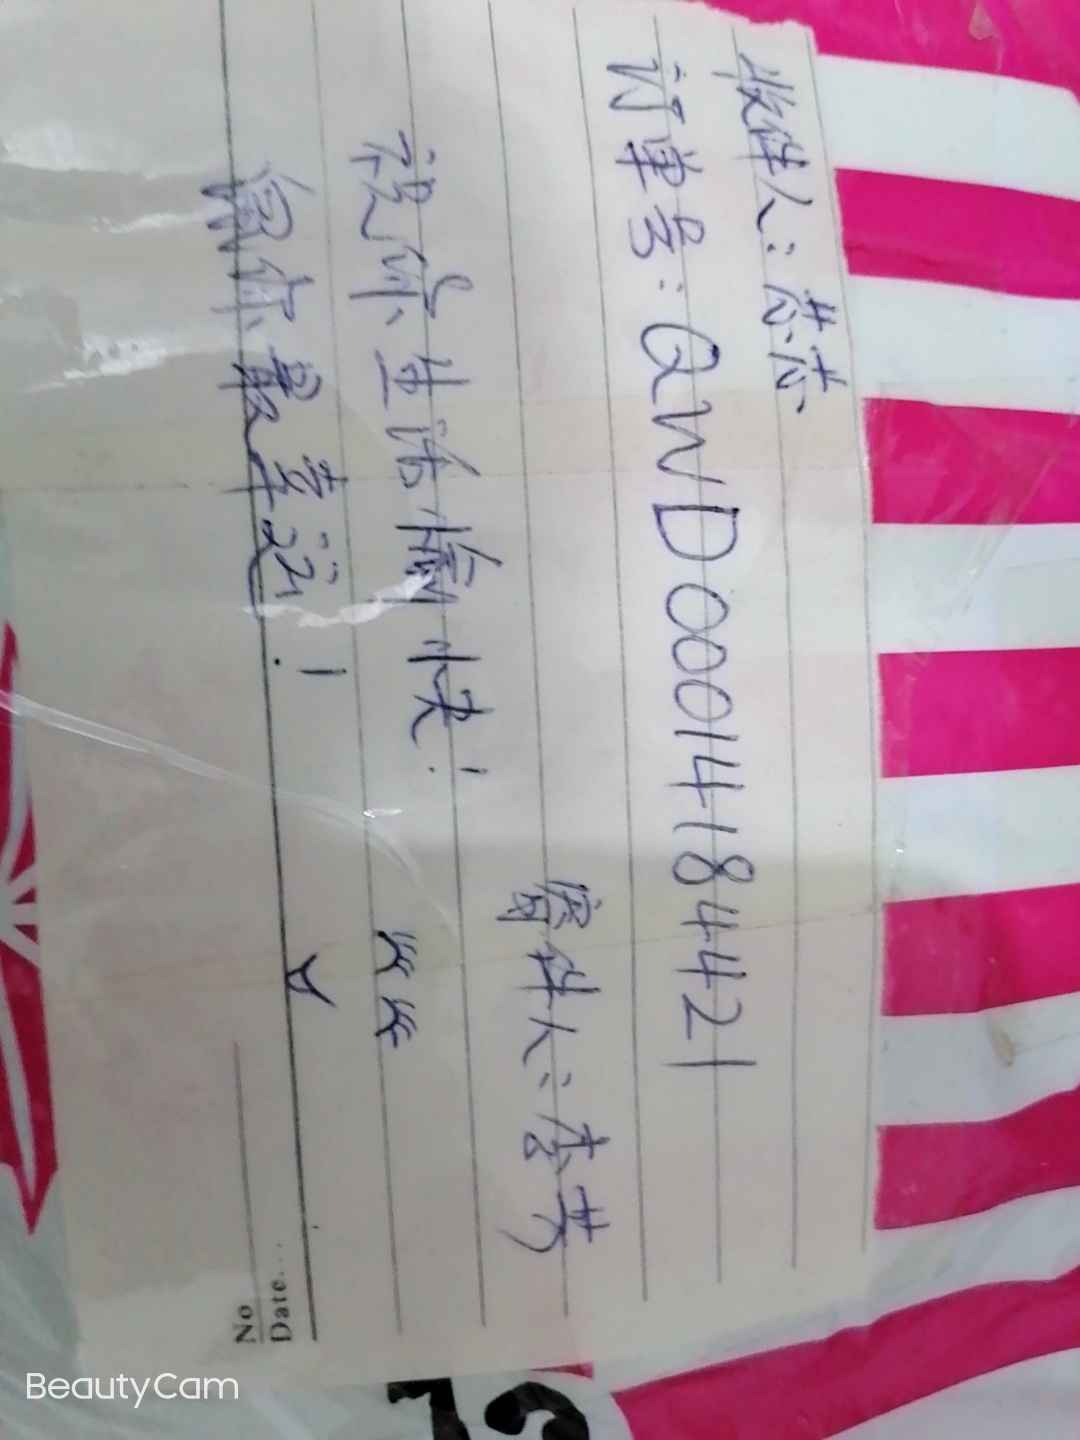 收件人：蓉蓉
订單号：QWD0001418442​1
寄件人：李芳
祝你生活愉快！
爾你最幸运！
No
Date...
BeautyCam